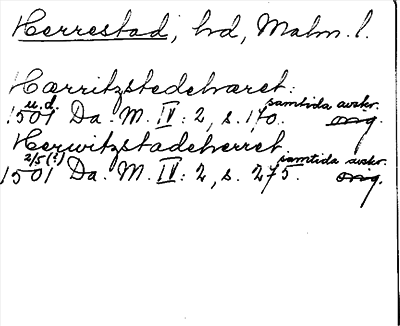 Herrestad, hd, Malm. l.
Hærritzstedehæret:
u.d. samtida avskr.
1501 Da. M. IV: 2, s. 170. orig.
Herwitzstadeherret
2/5 (?) samtida avskr.
1501 Da. M. IV: 2, s. 275. orig.